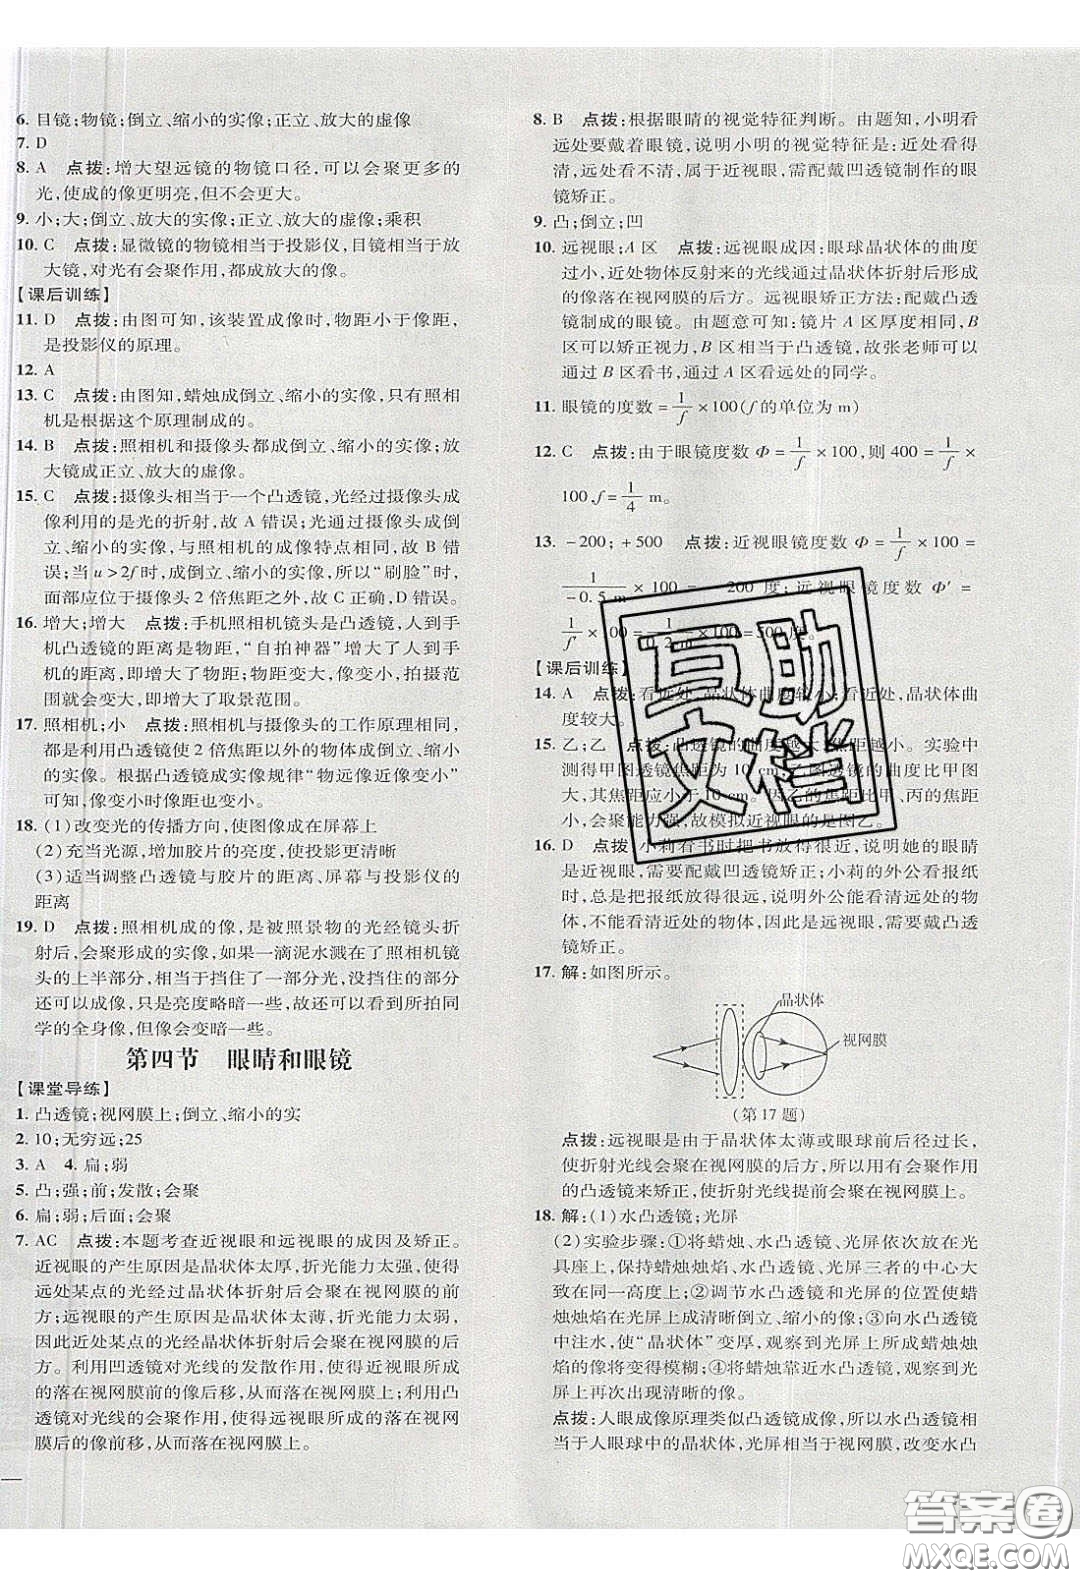 6. 目镜;物镜;倒立、缩小的实像;正立、放大的虚像
7. D
8. A 点拨:增大望远镜的物镜口径,可以会聚更多的
光,使成的像更明亮,但不会更大。
9. 小;大;倒立、放大的实像;正立、放大的虚像;乘积
10. C 点拨:显微镜的物镜相当于投影仪,目镜相当于放
大镜,对光有会聚作用,都成放大的像。
【课后训练】
11. D 点拨:由图可知,该装置成像时,物距小于像距,
是投影仪的原理。
12. A
13. C 点拨:由图知,蜡烛成倒立、缩小的实像,只有照相
机是根据这个原理制成的。
14. B 点拨:照相机和摄像头都成倒立、缩小的实像,放
大镜成正立、放大的虚像。
15. C 点拨:摄像头相当于一个凸透镜,光经过摄像头成
像利用的是光的折射,故 A 错误;光通过摄像头成倒
立、缩小的实像,与照相机的成像特点相同,故 B 错
误;当 u>2f 时,成倒立、缩小的实像,所以“刷脸”时,
面部应位于摄像头 2 倍焦距之外,故 C 正确,D 错误。
16. 增大;增大 点拨:手机照相镜头是凸透镜,人到手
机凸透镜的距离是物距,“自拍神器”增大了人到手
机的距离,即增大了物距,像距变小,像变小,拍摄范
围就会变大,即增大了取景范围。
17. 照相机;小 点拨:照相机与摄像头的工作原理相同,
都是利用凸透镜使 2 倍焦距以外的物体成倒立、缩小
的实像。根据凸透镜成实像规律“物远像近像变小”
可知,像变小时像距也变小。
18. (1)改变光的传播方向,使图像成在屏幕上
(2)充当光源,增加胶片的亮度,使投影更清晰
(3)适当调整凸透镜与胶片的距离、屏幕与投影仪的
距离
19. D 点拨:照相机成的像,是被照景物的光经镜头折
射后,会聚形成的实像,如果一滴泥水溅在了照相机镜
头的上半部分,相当于挡住了一部分光,没挡住的部分
还可以成像,只是亮度略暗一些,故还可以看到所拍同
学的全身像,但像会变暗一些。
第四节 眼睛和眼镜
【课堂导练】
1. 凸透镜;视网膜上;倒立、缩小的实
2. 10;无穷远;25
3. A 4. 扁;弱
5. 凸;强;前;发散;会聚
6. 扁;弱;后面;会聚
7. AC 点拨:本题考查近视眼和远视眼的成因及矫正。
近视眼的产生原因是晶状体太厚,折光能力太强,使得
远处某点的光经过晶状体折射后会聚在视网膜的前
方;远视眼的产生原因是晶状体太薄,折光能力太弱,
因此近处某点的光经晶状体折射后会聚在视网膜的后
方。利用凹透镜对光线的发散作用,使得近视眼所成
的落在视网膜前的像后移,从而落在视网膜上;利用凸
透镜对光线的会聚作用,使得远视眼所成的落在视网
膜后的像前移,从而落在视网膜上。
8. B 点拨:根据眼睛的视觉特征判断。由题知,小明看
远处要戴着眼镜,说明小明的视觉特征是:近处看得
清,远处看不清,属于近视眼,需配戴凹透镜制作的眼
镜矫正。
9. 凸;倒立;凹
10. 远视眼;A 区 点拨:远视眼成因:眼球晶状体的曲度
过小,近处物体反射来的光线通过晶状体折射后形成
的像落在视网膜的后方。远视眼矫正方法:配戴凸透
镜制成的眼镜。由题意可知:镜片 A 区厚度相同,B
区可以矫正视力,B 区相当于凸透镜,故张老师可以
通过 B 区看书,通过 A 区看远处的同学。
11. 眼镜的度数=1/f×100(f 的单位为 m)
12. C 点拨:由于眼镜度数 Φ=1/f×100,则 400=1/f×
100,f=1/4 m。
13. -200;+500 点拨:近视眼镜度数 Φ=1/f×100=
1/-0.5 m×100=-200 度;远视眼镜度数 Φ′=
1/f′×100=1/0.2 m×100=500 度。
【课后训练】
14. A 点拨:看远处,晶状体曲度较小;看近处,晶状体曲
度较大。
15. 乙;乙 点拨:凸透镜的曲度越大,焦距越小。实验中
测得甲图透镜焦距为 10 cm;乙图透镜的曲度比甲图
大,其焦距应小于 10 cm。因乙的焦距比甲、丙的焦距
小,会聚能力强,故模拟近视眼的是图乙。
16. D 点拨:小莉看书时把书放得很近,说明她的眼睛
是近视眼,需要配戴凹透镜矫正;小莉的外公看报纸
时,总是把报纸放得很远,说明外公能看清远处的物
体,不能看清近处的物体,因此是远视眼,需要戴凸透
镜矫正。
17. 解:如图所示。
晶状体
视网膜
(第 17 题)
点拨:远视眼是由于晶状体太薄或眼球前后径过长,
使折射光线会聚在视网膜的后方,所以用有会聚作用
的凸透镜来矫正,使折射光线提前会聚在视网膜上。
18. 解:(1)水凸透镜;光屏
(2)实验步骤:①将蜡烛、水凸透镜、光屏依次放在光
具座上,保持蜡烛烛焰、水凸透镜、光屏三者的中心大
致在同一高度上;②调节水凸透镜和光屏的位置使蜡
烛烛焰在光屏上成清晰倒立、缩小的像;③向水凸透镜
中注水,使“晶状体”变厚,观察到光屏上所成蜡烛烛
焰的像将变得模糊;④将蜡烛靠近水凸透镜,观察到光
屏上再次出现清晰的像。
点拨:人眼成像原理类似凸透镜成像,所以水凸透镜相
当于人眼球中的晶状体,光屏相当于视网膜,改变水凸
互助
文档
答案卷
MXQE.COM